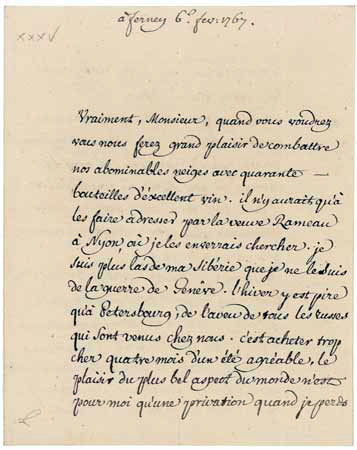 à ferney 6e. fev. 1767.
XXXV
Vraiment, Monsieur, quand vous voudrez
vous nous ferez grand plaisir de combattre
nos abominables neiges avec quarante —
bouteilles d'éxcellent vin. il n'y aurait qu'à
les faire adresser par la veuve Rameau
à Nyon, où je les enverrais chercher. je
suis plus las de ma sibérie que je ne le suis
de la guerre de Genêve. l'hiver y est pire
qu'à Petersbourg, de l'aveu de tous les russes
qui sont venus chez nous. c'est acheter trop
cher quatre mois d'un été agréable, le
plaisir du plus bel aspect du monde n'est
pour moi qu'une privation quand je perds